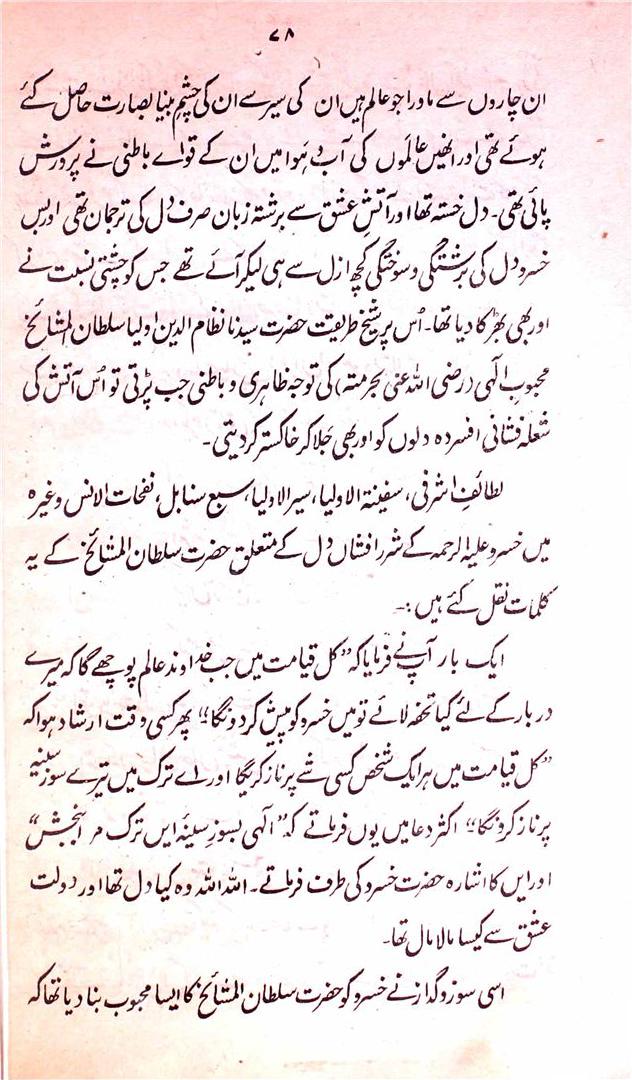 ۷۸
ان چاروں سے ماورا جو عالم ہیں ان کی سیر سے ان کی چشمِ بینا بصارت حاصل کئے
ہوئے تھی اور انھیں عالموں کی آب و ہوا میں ان کے قوائے باطنی نے پرورش
پائی تھی۔ دل خستہ تھا اور آتشِ عشق سے برشتہ زبان صرف دل کی ترجمان تھی اور بس
خسرو دل کی برشتگی و سوختگی کچھ ازل سے ہی لیکر آئے تھے جس کو چشتی نسبت نے
اور بھی بھڑکا دیا تھا۔ اُس پر شیخ طریقت حضرت سیدنا نظام الدین اولیا سلطان المشائخ
محبوبِ الٰہی (رضی اللہ عنی بحرمتہ) کی توجہ ظاہری و باطنی جب پڑتی تو اُس آتش کی
شعلہ فشانی افسردہ دلوں کو اور بھی جَلا کر خاکستر کر دیتی۔
لطائفِ اشرفی، سفینۃ الاولیا، سیر الاولیا، سبع سنابل، نفحات الانس وغیرہ
میں خسرو علیہ الرحمہ کے شرر افشاں دل کے متعلق حضرت سلطان المشائخ کے یہ
کلمات نقل کئے ہیں :۔
ایک بار آپ نے فرمایا کہ "کل قیامت میں جب خداوند عالم پوچھے گا کہ میرے
دربار کے لئے کیا تحفہ لائے تو میں خسرو کو پیش کر دونگا" پھر کسی وقت ارشاد ہوا کہ
"کل قیامت میں ہر ایک شخص کسی شے پر ناز کریگا اور اے ترک میں تیرے سوزِ سینہ
پر ناز کرونگا" اکثر دعا میں یوں فرماتے کہ "الٰہی بسوزِ سینۂ ایں ترک مرا بخش"
اور ایں کا اشارہ حضرت خسرو کی طرف فرماتے۔ اللہ اللہ وہ کیا دل تھا اور دولت
عشق سے کیسا مالا مال تھا۔
اسی سوز و گداز نے خسرو کو حضرت سلطان المشائخ کا ایسا محبوب بنا دیا تھا کہ